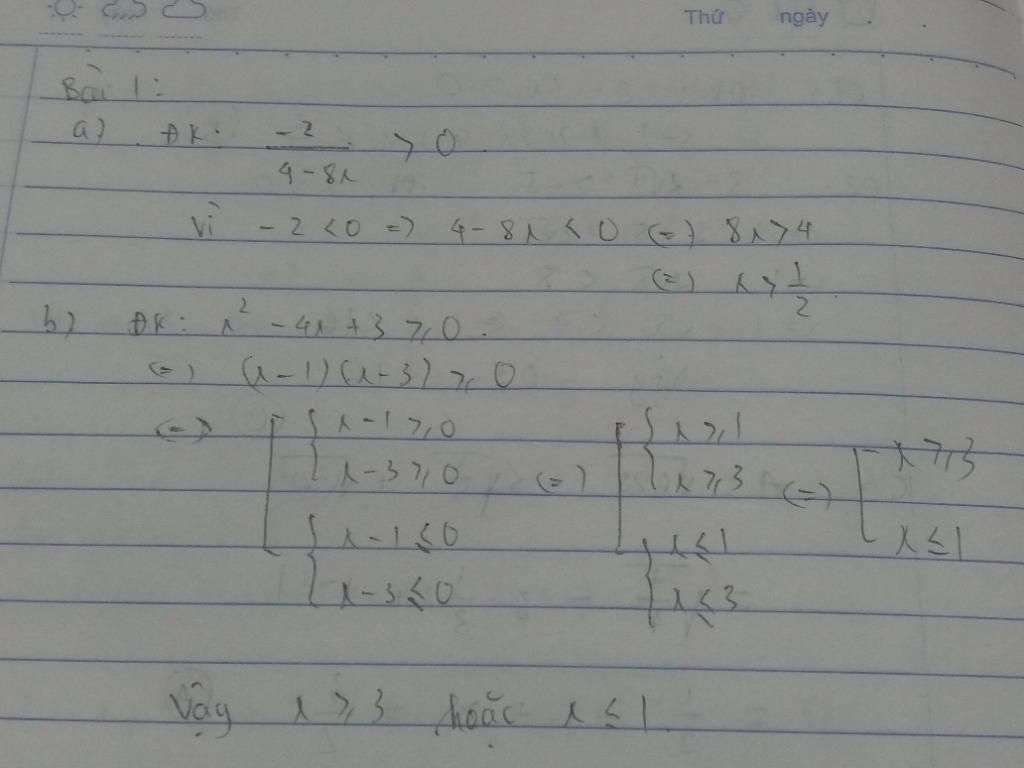 Thứ ngày
Bài 1:
a) ĐK: -2/(4-8x) > 0
Vì -2 < 0 => 4-8x < 0 (=) 8x > 4
(=) x > 1/2
b) ĐK: x² - 4x + 3 ≥ 0.
(=) (x-1)(x-3) ≥ 0
(=) [ { x-1 ≥ 0 (=) [ { x ≥ 1 (=) [ x ≥ 3
x-3 ≥ 0 x ≥ 3 x ≤ 1
{ x-1 ≤ 0 { x ≤ 1
x-3 ≤ 0 x ≤ 3
Vậy x ≥ 3 hoặc x ≤ 1